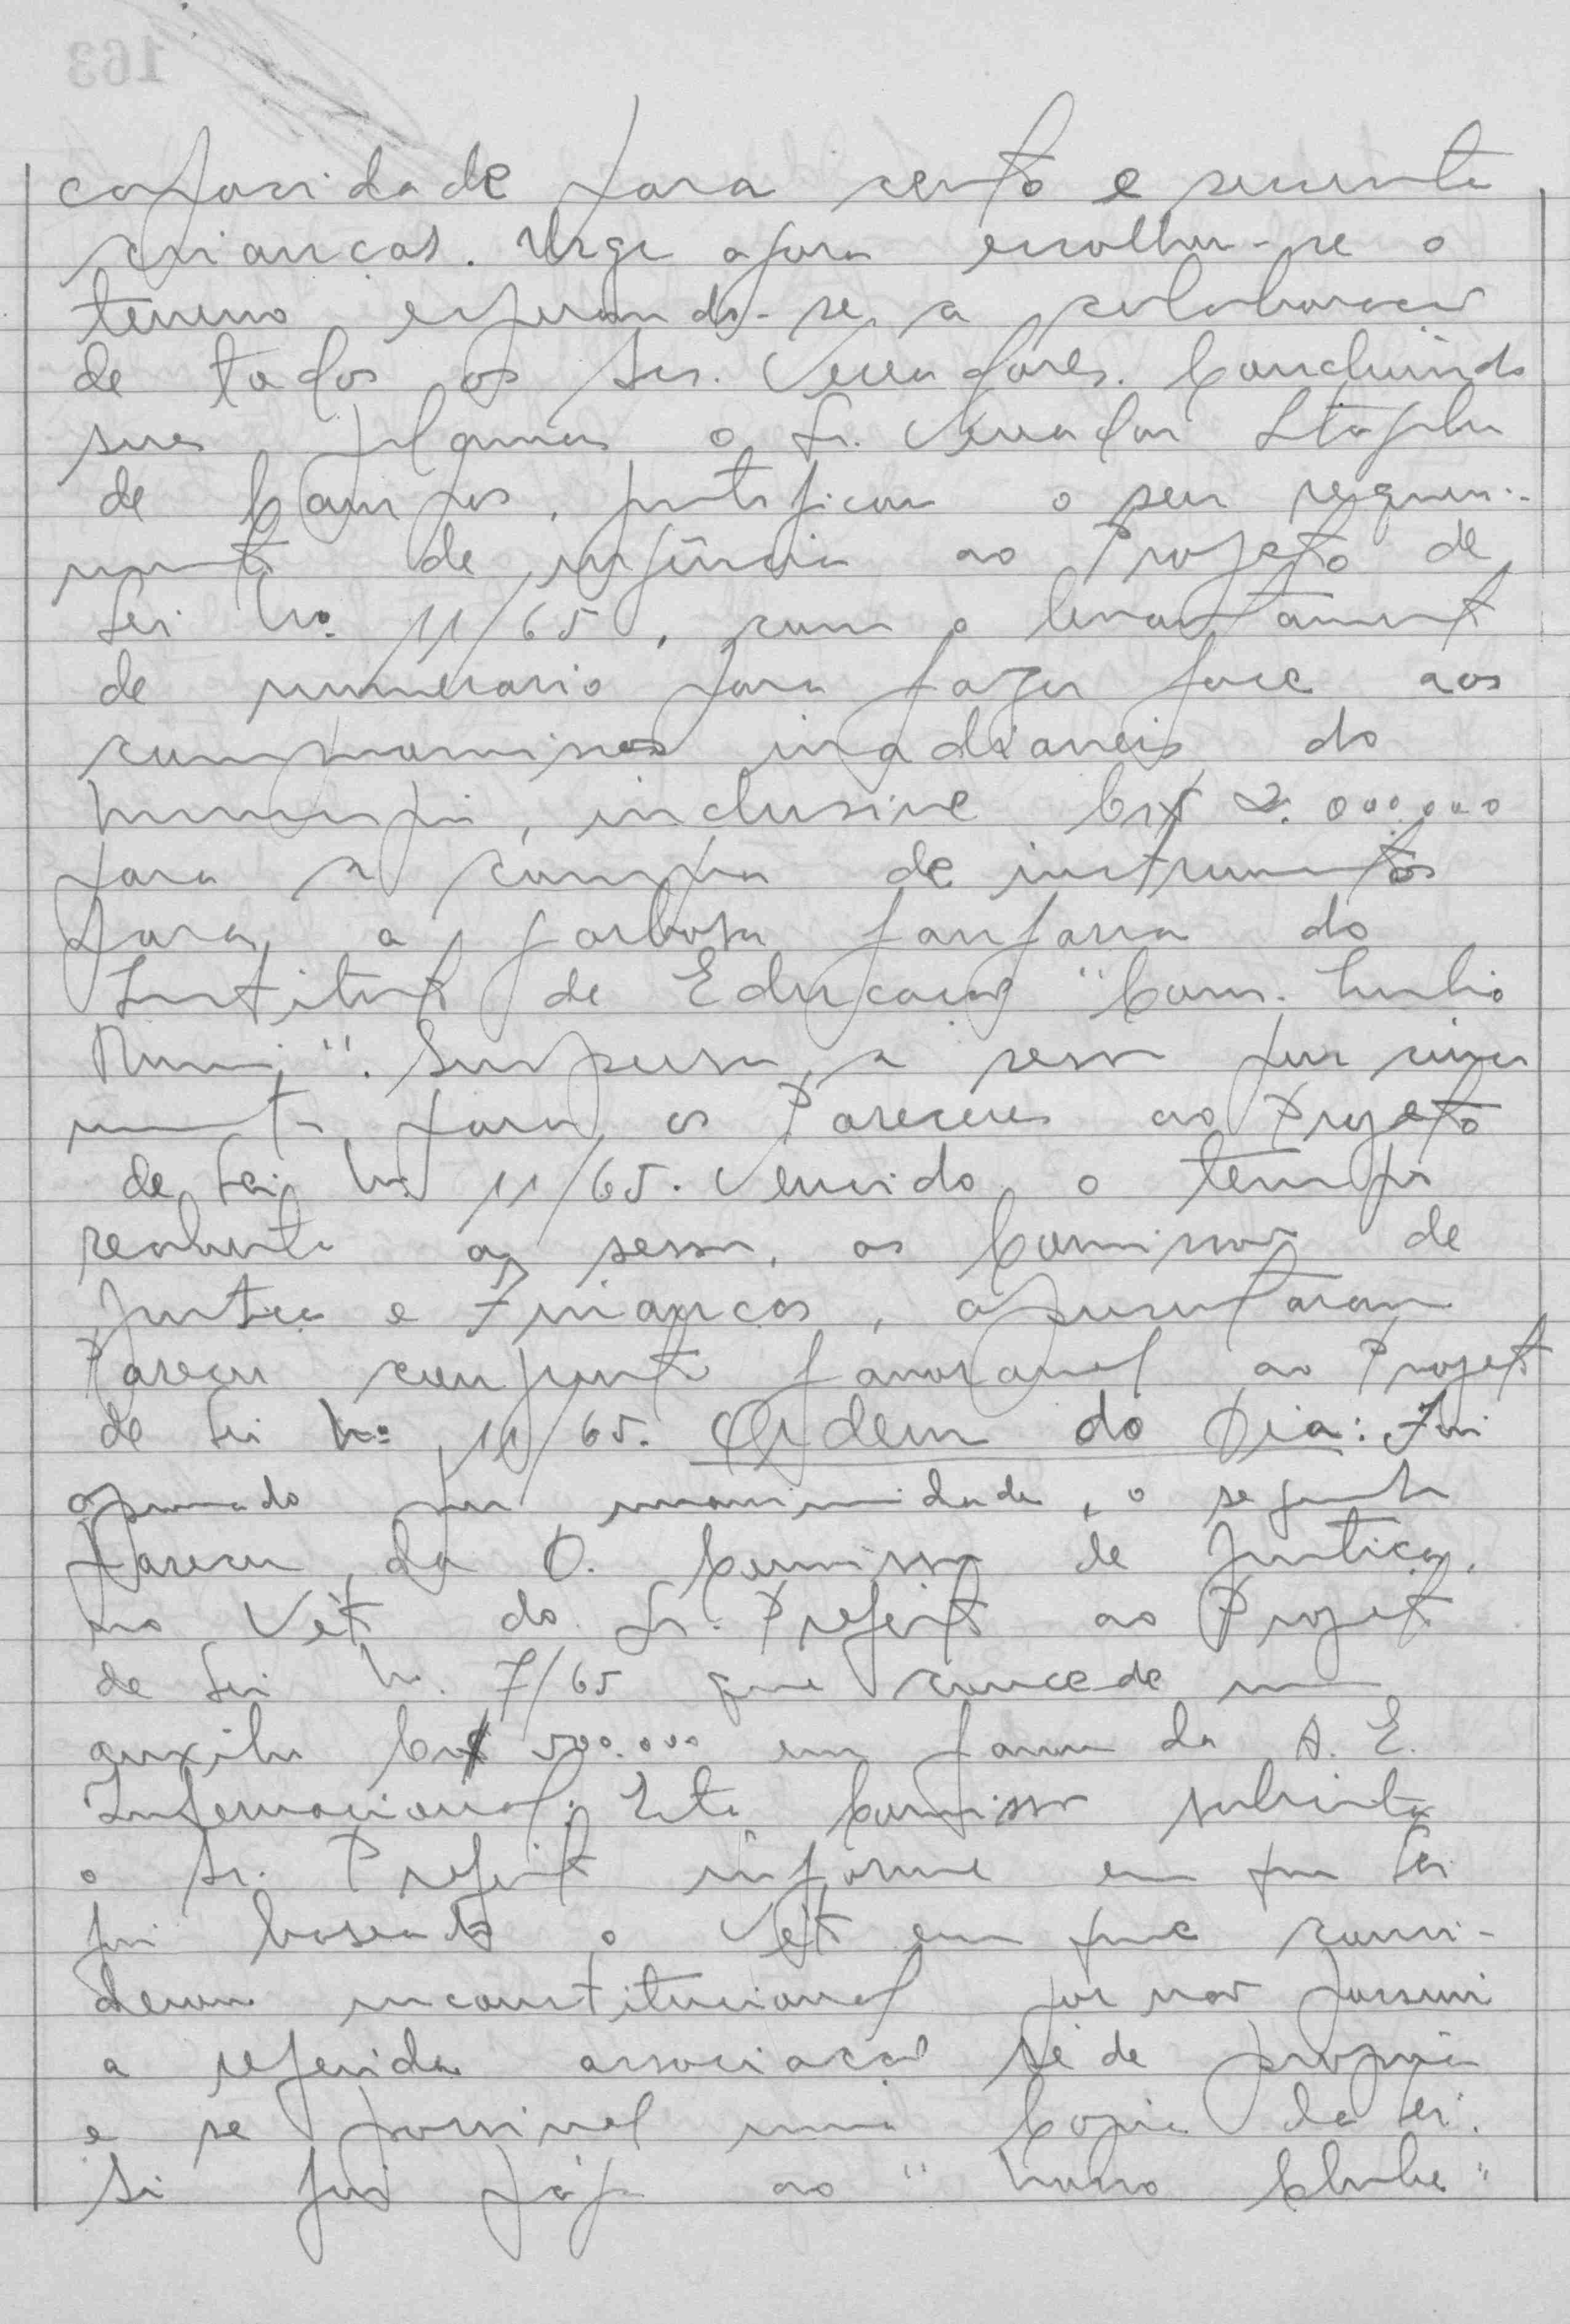 capacidade para cento e sessenta
crianças. Urge agora escolher-se o
terreno esperando-se a colaboração
de todos os Srs. Vereadores. Concluindo
sua o Sr. Vereador
de Campos, justificou o seu requeri-
mento de urgência ao Projeto de
Lei Nº 11/65, com o levantamento
de numerario para fazer face aos
compromissos inadiaveis do
Municipio, inclusive Cr$ 2.000.000
para a compra de instrumentos
para a garbosa fanfarra do
Instituto de Educação "Com.
". Suspensa a sessão por cinco
minutos para os Pareceres ao Projeto
de Lei Nº 11/65. Vencido o tempo
reaberta a sessão, as Comissões de
Justiça e Finanças, apresentaram
Parecer conjunto favoravel ao Projeto
de Lei Nº 11/65. Ordem do Dia: Foi
aprovado por unanimidade, o seguinte
Parecer da D. Comissão de Justiça,
no Véto do Sr. Prefeito ao Projeto
de Lei N. 7/65 que concede um
auxilio Cr$ 500.000 em favor da A. E.
Internacional: Esta Comissão solicita
o Sr. Prefeito informe em que Lei
foi baseado o Véto em que consi-
derou inconstitucional por não possuir
a referida associação séde propria
e se possivel uma Copia da Lei.
Si foi pago ao "Nosso Clube"